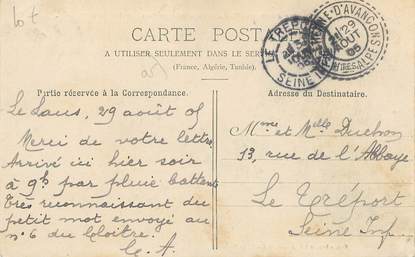 lot
CARTE POSTALE
A UTILISER SEULEMENT DANS LE SERVICE
(France, Algérie, Tunisie).
LE TREPORT
SEINE INFRE
ETIENNE-D'AVANÇON
29
AOUT
05
HTES ALPES
Partie réservée à la Correspondance.
Le Laus, 29 août 05
Merci de votre lettre.
Arrivé ici hier soir
à 9h par pluie battante
Très reconnaissant du
petit mot envoyé au
no 6 du Cloître.
Adresse du Destinataire.
Mme et Mlle Duchon
13, rue de l'Abbaye
Le Tréport
Seine Infre